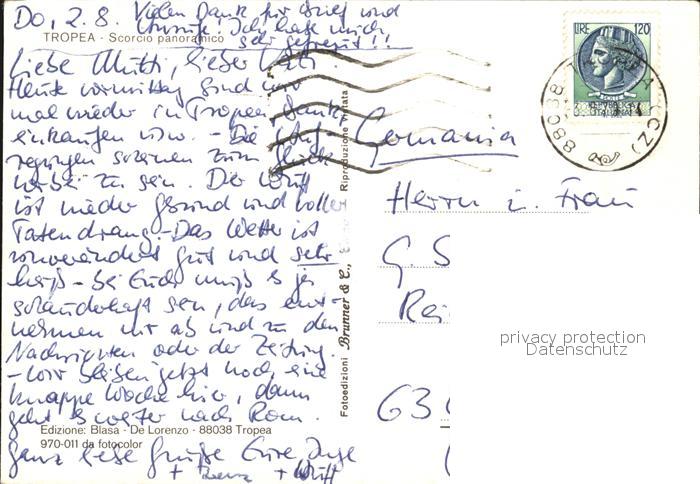 Do, 2.8. Vielen Dank für Brief und
Anrufe. Ich habe mich
TROPEA - Scorcio panoramico
sehr gefreut!!
Liebe Mutti, lieber Vati!
Heute vormittag sind wir
mal wieder in Tropea, Bank,
einkaufen usw. - Die
regungen scheinen zum Glück
vorbei zu sein. Der
ist wieder gesund und voller
Tatendrang. - Das Wetter ist
unverändert gut und sehr
heiß - bei Euch muß es ja
schauderhaft sein, das ent-
nehmen wir ab und zu den
Nachrichten oder der Zeitung.
- Wir bleiben jetzt noch eine
knappe Woche hier, dann
geht es weiter nach Rom.
Edizione: Blasa - De Lorenzo - 88038 Tropea
970-011 da fotocolor
Ganz liebe Grüße Eure Inge
Fotoedizioni Brunner & C.,
Riproduzione vietata
LIRE 120
88038
(CZ)
Germania
Herrn u. Frau
G. S
Rei
63
privacy protection
Datenschutz